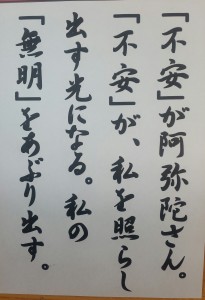 「不安」が阿弥陀さん。
「不安」が、私を照らし
出す光になる。私の
「無明」をあぶり出す。